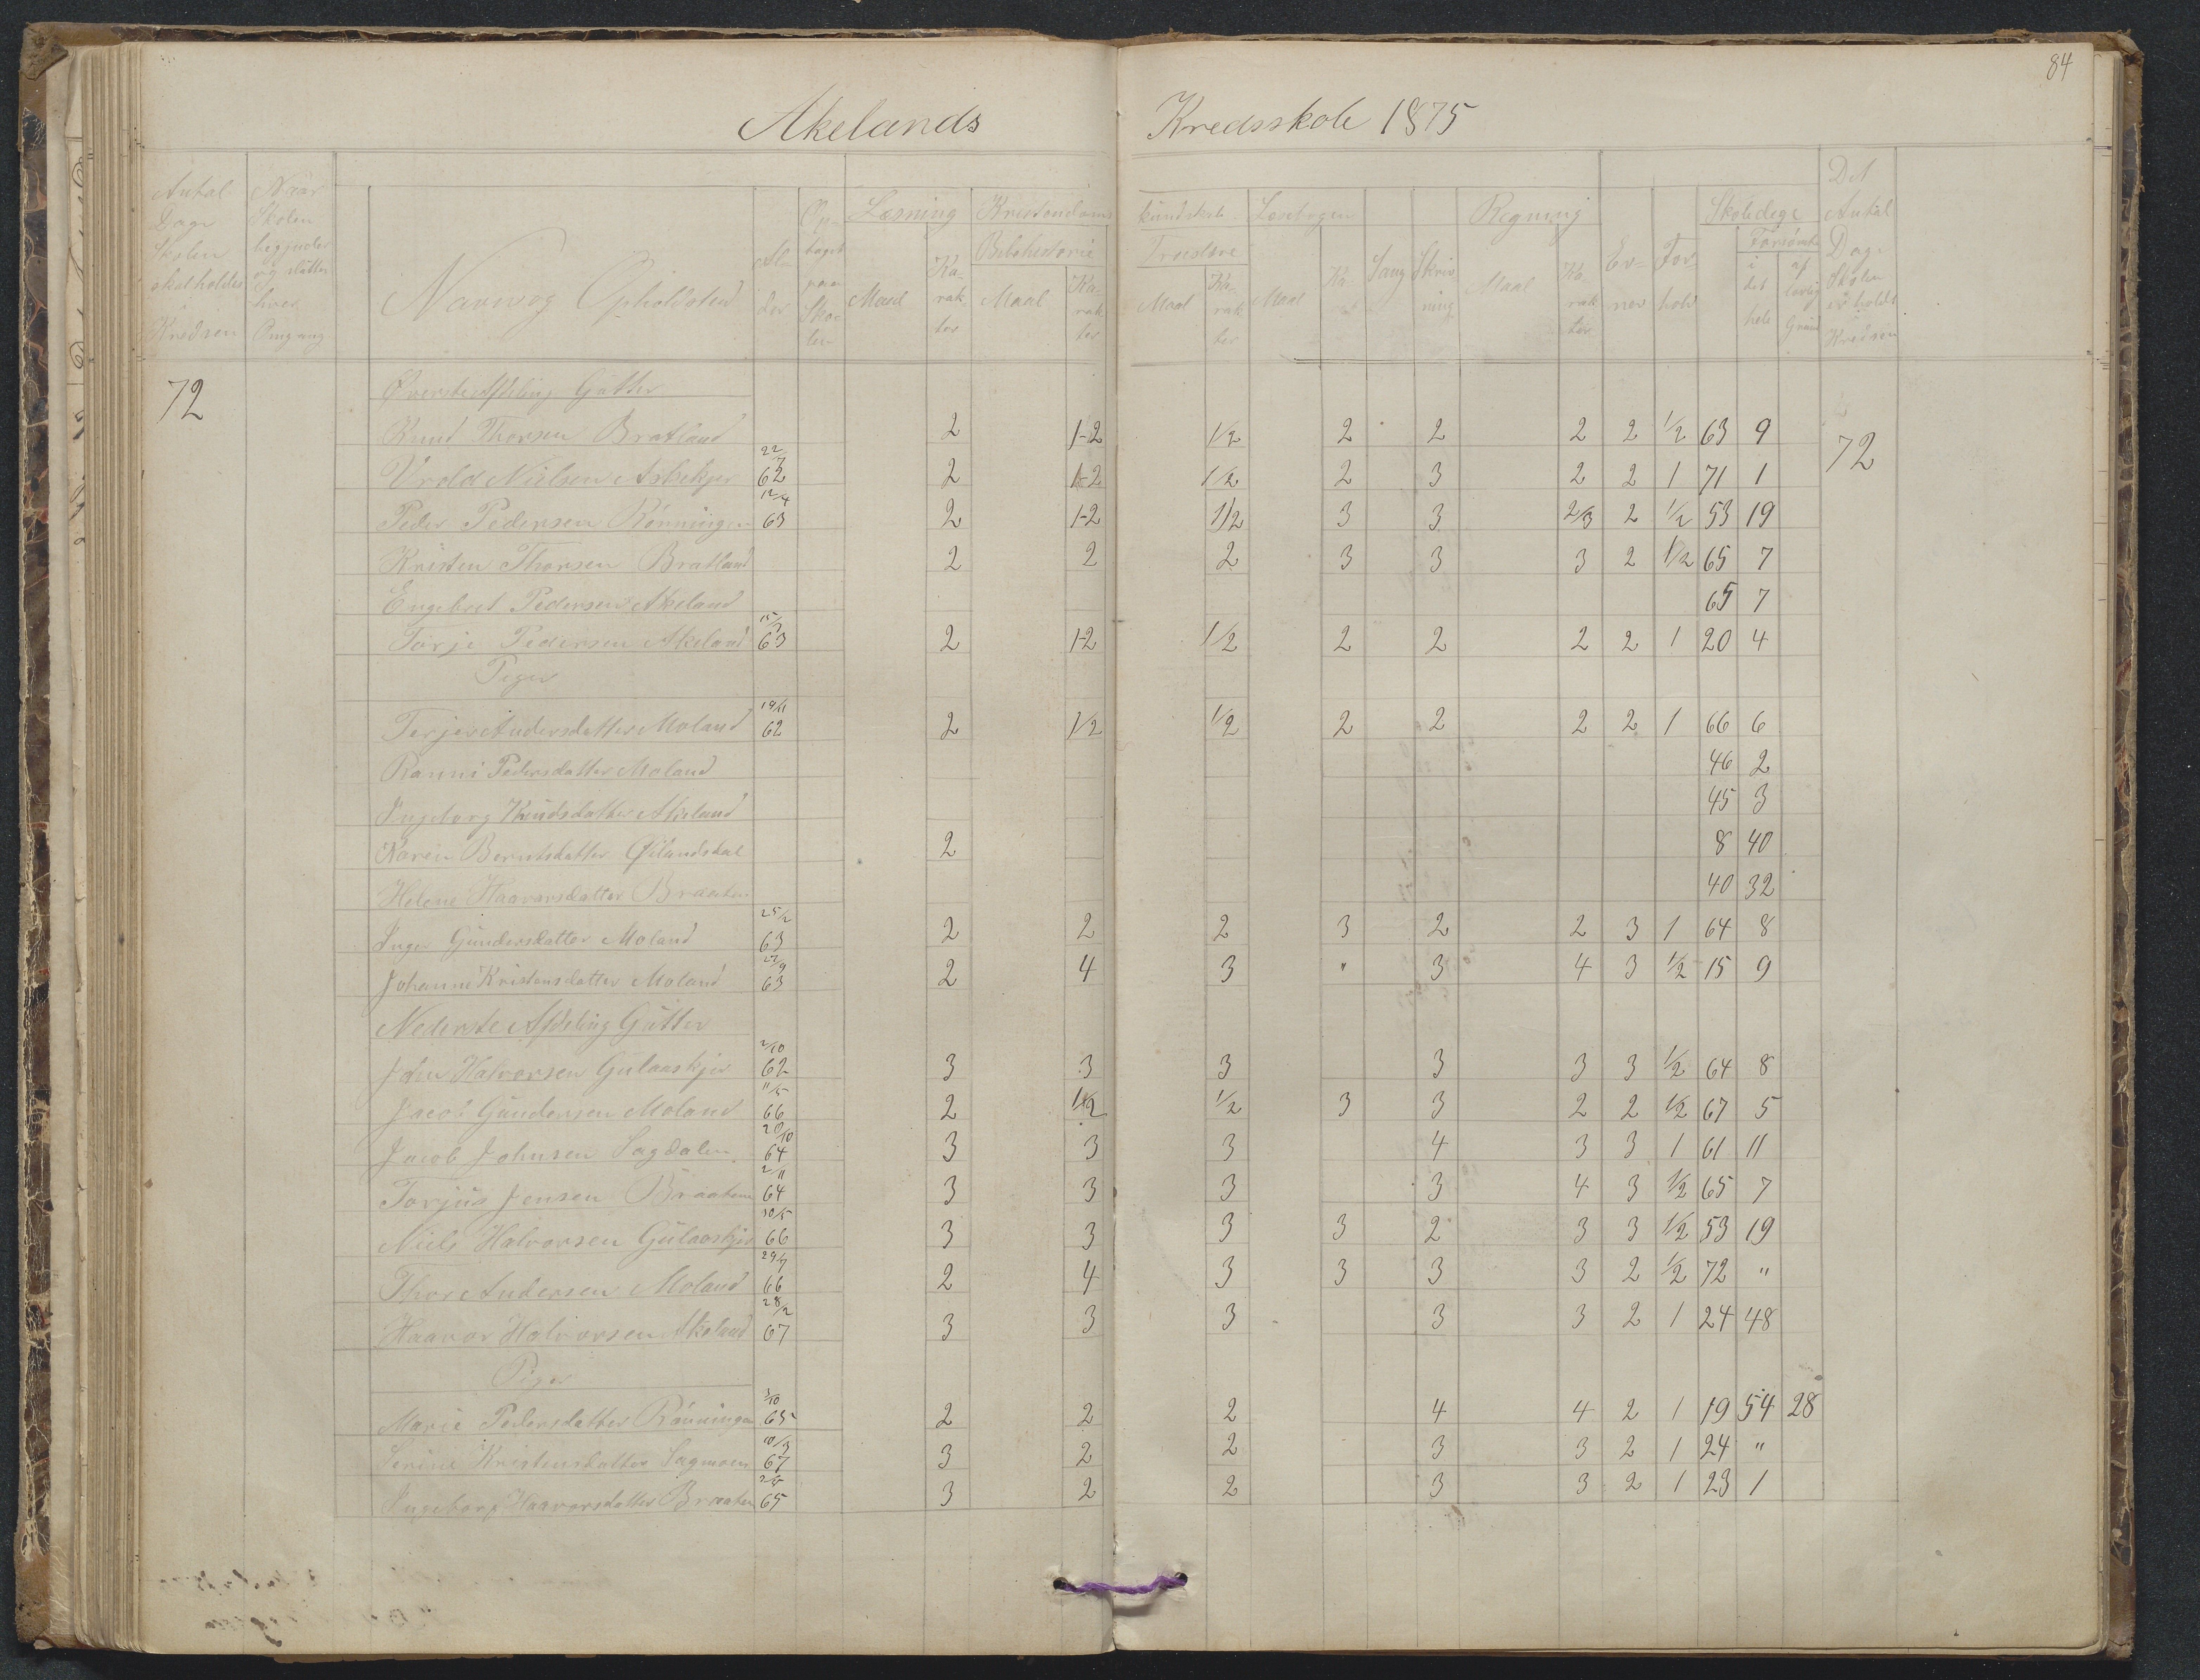 84
Akelands Kredsskole 1875
Antal Dage Skolen skal holdes i Kredsen
Naar Skolen begynder og slutter hver Omgang
Navn og Opholdsted
Alder
Optaget paa Skolen
Læsning Maal Karakter
Kristendomskundskab
Bibelhistorie Maal Karakter
Troeslære Maal Karakter
Læsebogen Maal Karak
Sang
Skrivning
Regning Maal Karakter
Evner
Forhold
Skoledage
i det hele
Forsømte
af lovlig Grund
Det Antal Dage Skolen er holdt i Kredsen
72
Øverste Afdeling Gutter
Knud Thorsen Bratland 2 1-2 1/2 2 2 2 2 1/2 63 9
72
Vrold Nielsen Asbekjer 22/7 62 2 1-2 1/2 2 3 2 2 1 71 1
Peder Pedersen Rønningen 12/4 63 2 1-2 1/2 3 3 2/3 2 1/2 53 19
Kristen Thorsen Bratland 2 2 2 3 3 3 2 1/2 65 7
Engebret Pedersen Akeland 65 7
Torje Pedersen Akeland 63 2 1-2 1/2 2 2 2 2 1 20 4
Piger
Terjer Andersdatter Moland 19/11 62 2 1/2 1/2 2 2 2 2 1 66 6
Ranni Pedersdatter Moland 46 2
Ingeborg Knudsdatter Akeland 45 3
Karen Berntsdatter 2 8 40
Helene Haavorsdatter Braaten 40 32
Inger Gundersdatter Moland 25/2 63 2 2 2 3 2 2 3 1 64 8
Johanne Kristensdatter Moland 22/9 63 2 4 3 " 3 4 3 1/2 15 9
Nederste Afdeling Gutter
John Halvorsen Gulaaskjer 2/10 62 3 3 3 3 3 3 1/2 64 8
Jacob Gundersen Moland 11/5 66 2 1/2 1/2 3 3 2 2 1/2 67 5
Jacob Johnsen Sagdalen 20/10 64 3 3 3 4 3 3 1 61 11
Torjus Jensen Braaten 2/11 64 3 3 3 3 4 3 1/2 65 7
Niels Halvorsen Gulaaskjer 30/5 66 3 3 3 3 2 3 3 1/2 53 19
Thor Andersen Moland 29/7 66 2 4 3 3 3 3 2 1/2 72 "
Haavor Halvorsen Akeland 28/2 67 3 3 3 3 3 2 1 24 48
Piger
Marie Pedersdatter Rønningen 3/10 65 2 2 2 4 4 2 1 19 54 28
Serine Kristensdatter Sagmoen 10/3 67 3 2 2 3 3 2 1 24 "
Ingeborg Haavorsdatter Braaten 65 3 2 2 3 3 2 1 23 1